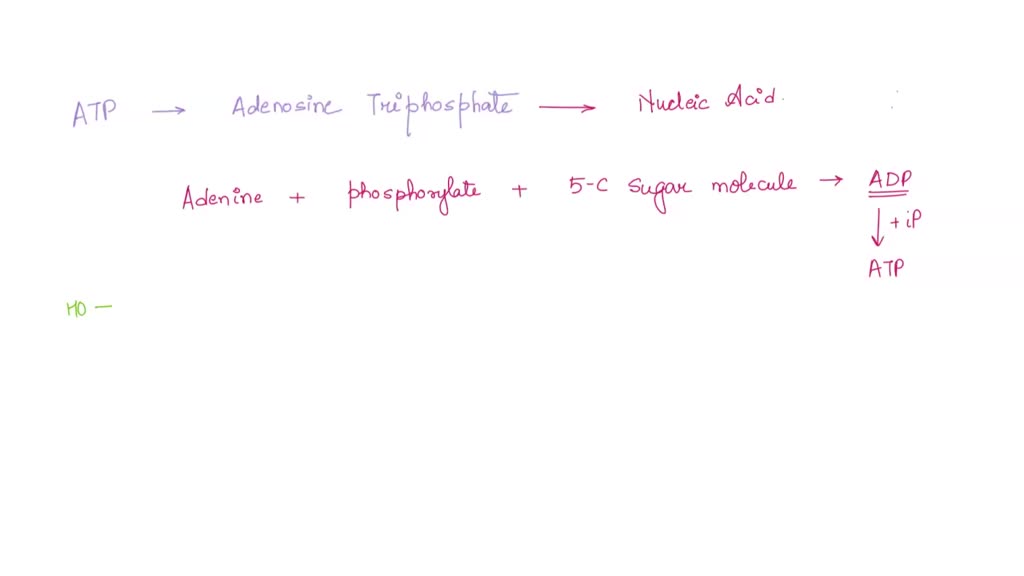 ATP → Adenosine Triphosphate → Nucleic Acid.
Adenine + phosphorylate + 5-C sugar molecule → ADP
↓ + iP
ATP
HO —